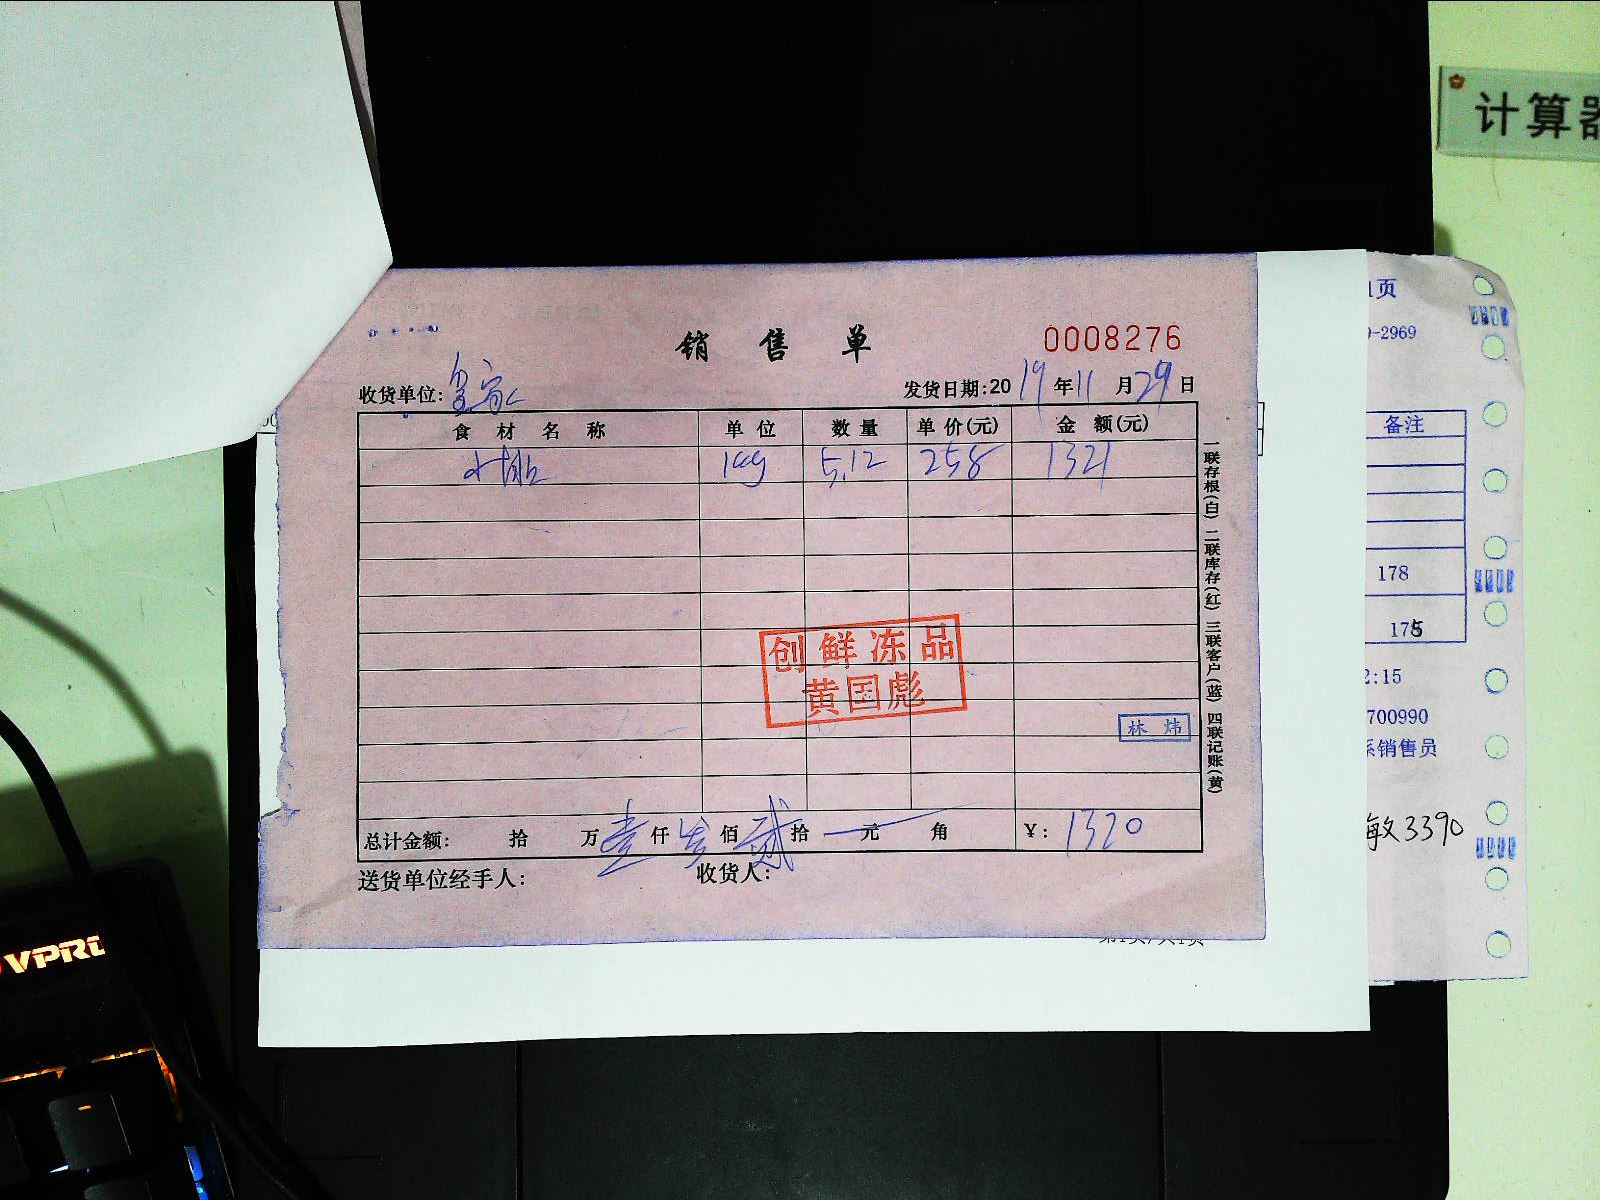 计算器
1页
销售单
0008276
-2969
收货单位: 皇家
发货日期:2019年11月29日
食材名称 单位 数量 单价(元) 金额(元)
备注
kg 5.12 258 1321
一联存根(白) 二联库存(红) 三联客户(蓝) 四联记账(黄)
178
创鲜冻品
175
黄国彪
2:15
700990
林炜
系销售员
总计金额: 拾 万壹仟 佰 拾 元 角 ¥: 1320
敏3390
送货单位经手人: 收货人:
第1页/共1页
VPRO